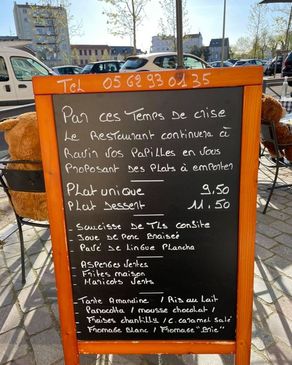 Tel 05 62 93 01 35
Par ces Temps de crise
Le Restaurant continuera à
Ravir vos Papilles en vous
Proposant des Plats à emporter
Plat unique 9,50
Plat Dessert 11,50
- Saucisse de TLs confite
- Joue de Porc Braisée
- Pavé de Lingue Plancha
- Asperges vertes
- Frites maison
- Haricots verts
- Tarte Amandine / Ris au Lait
Panacotta / mousse chocolat /
Fraises chantilly / c caramel salé
- Fromage Blanc / Fromage "Brie"